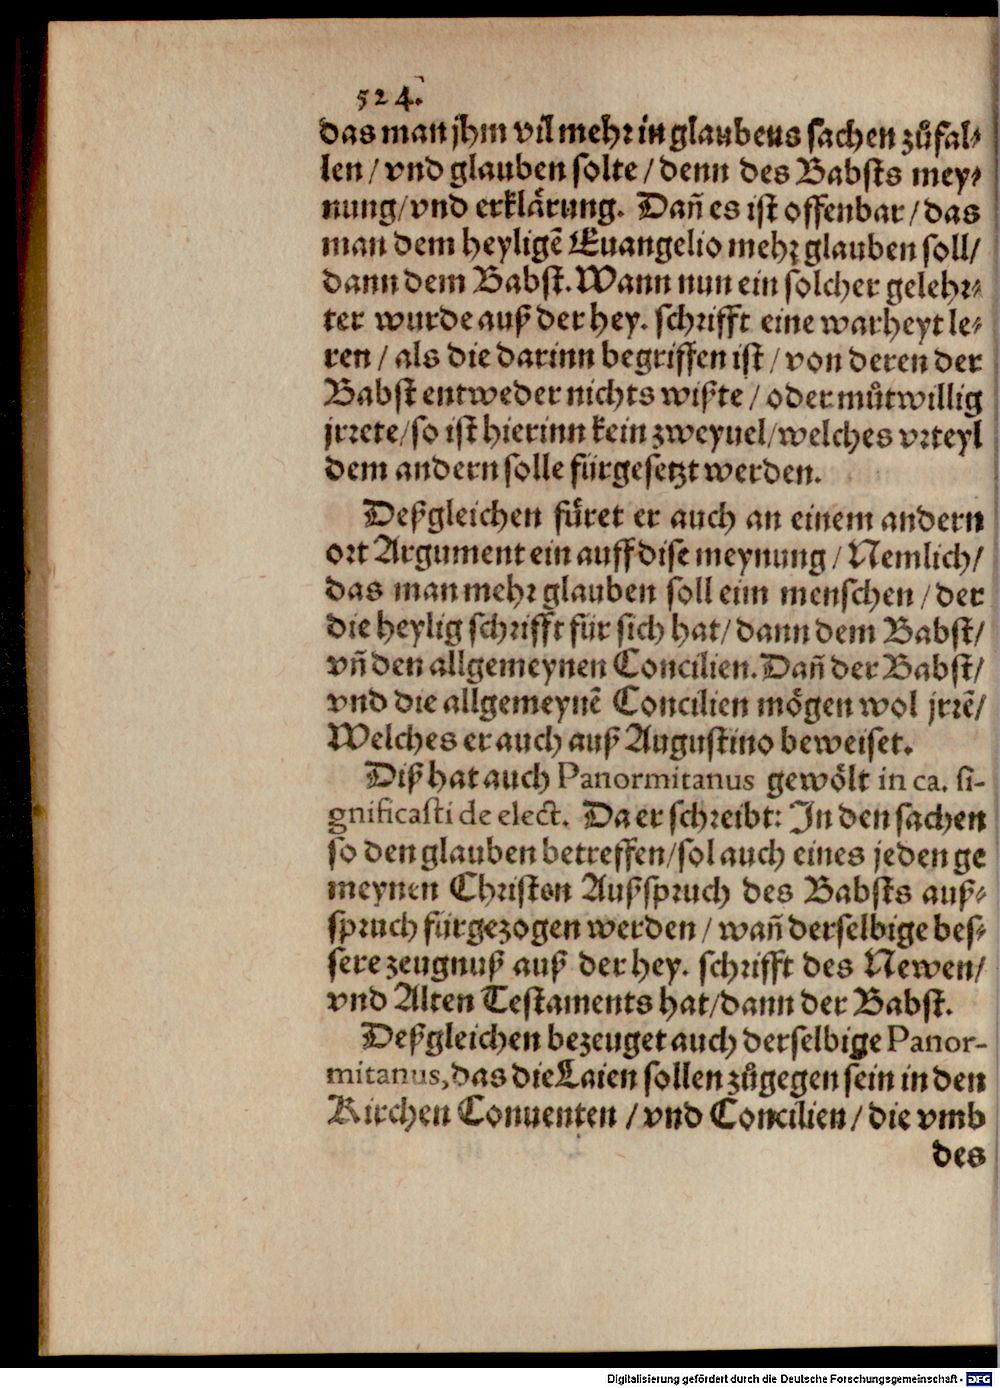 524.
das man jhm vil mehr in glaubens sachen zůfal-
len / vnd glauben solte / denn des Babsts mey-
nung/vnd erklärung. Dañ es ist offenbar / das
man dem heyligē Euangelio mehr glauben soll/
dann dem Babst. Wann nun ein solcher gelehr-
ter wurde auß der hey. schrifft eine warheyt le-
ren / als die darinn begriffen ist / von deren der
Babst entweder nichts wißte / oder můtwillig
jrrete/so ist hierinn kein zweyuel/welches vrteyl
dem andern solle fürgesetzt werden.
Deßgleichen füret er auch an einem andern
ort Argument ein auff dise meynung / Nemlich/
das man mehr glauben soll eim menschen / der
die heylig schrifft für sich hat/ dann dem Babst/
vñ den allgemeynen Concilien. Dañ der Babst/
vnd die allgemeynē Concilien mögen wol jrrē/
Welches er auch auß Augustino beweiset.
Diß hat auch Panormitanus gewölt in ca. si-
gnificasti de elect. Da er schreibt: In den sachen
so den glauben betreffen/sol auch eines jeden ge
meynen Christen Außspruch des Babsts auß-
spruch fürgezogen werden / wañ derselbige bes-
sere zeugnuß auß der hey. schrifft des Newen/
vnd Alten Testaments hat/dann der Babst.
Deßgleichen bezeuget auch derselbige Panor-
mitanus, das die Laien sollen zůgegen sein in den
Kirchen Conuenten / vnd Concilien / die vmb
des
Digitalisierung gefördert durch die Deutsche Forschungsgemeinschaft - DFG